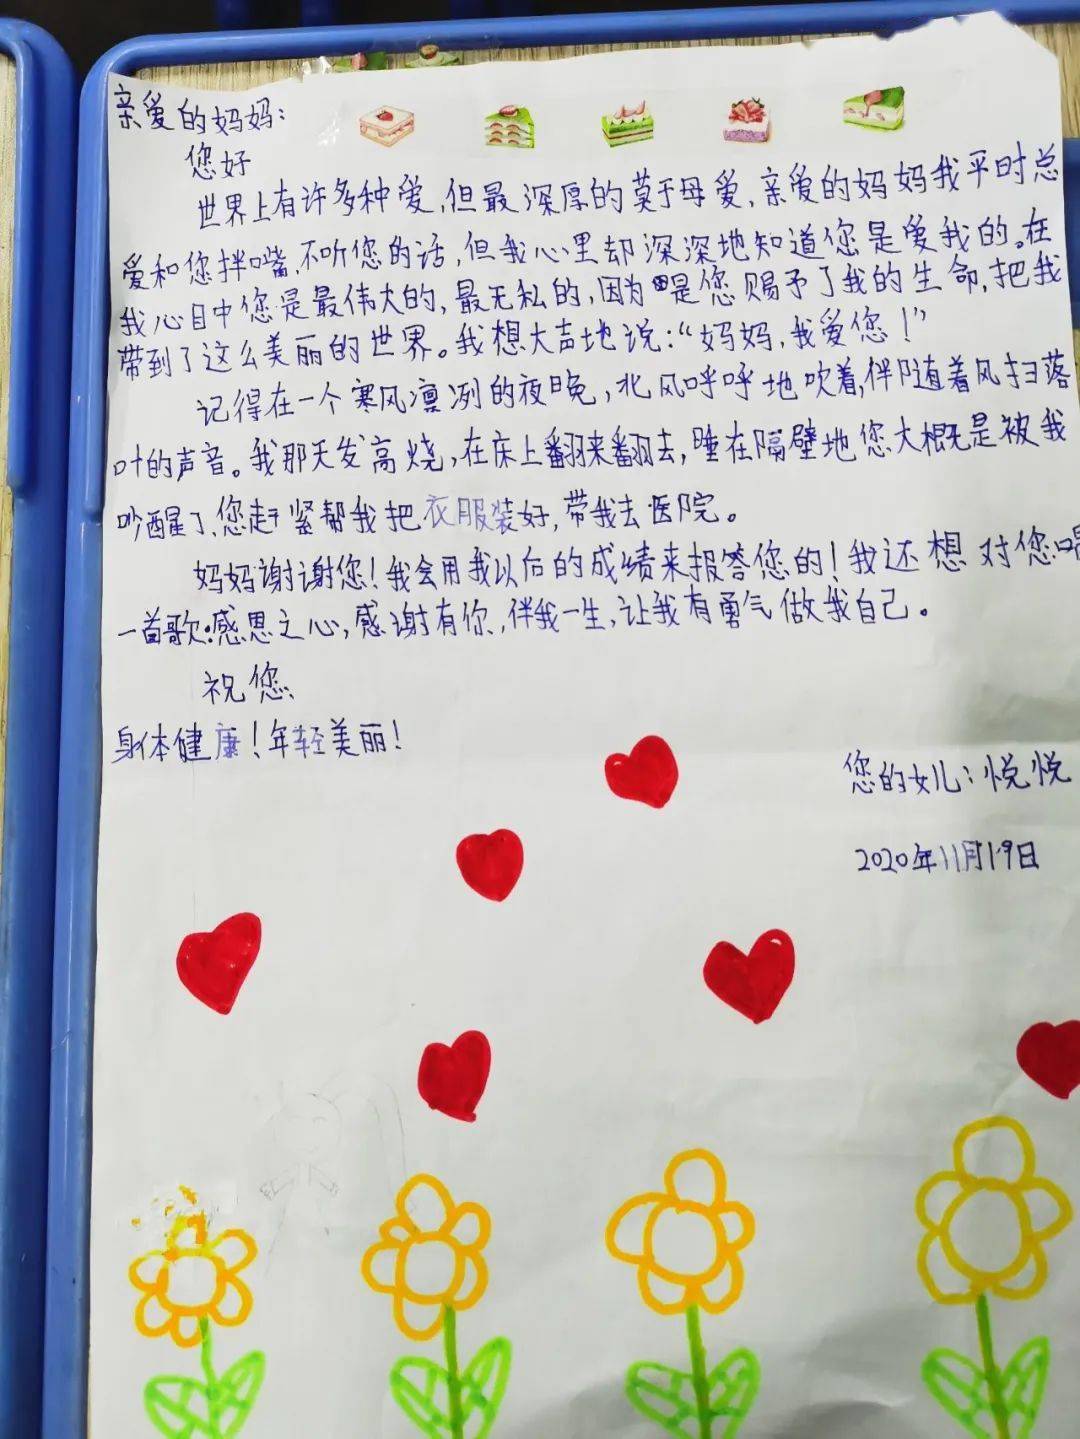 亲爱的妈妈:
您好
世界上有许多种爱,但最深厚的莫于母爱,亲爱的妈妈我平时总
爱和您拌嘴,不听您的话,但我心里却深深地知道您是爱我的。在
我心目中您是最伟大的,最无私的,因为是您赐予了我的生命,把我
带到了这么美丽的世界。我想大声地说:“妈妈,我爱您!”
记得在一个寒风凛冽的夜晚,北风呼呼地吹着,伴随着风扫落
叶的声音。我那天发高烧,在床上翻来翻去,睡在隔壁地您大概是被我
吵醒了,您赶紧帮我把衣服装好,带我去医院。
妈妈谢谢您!我会用我以后的成绩来报答您的!我还想对您唱
一首歌:感恩之心,感谢有你,伴我一生,让我有勇气做我自己。
祝您
身体健康!年轻美丽!
您的女儿:悦悦
2020年11月19日